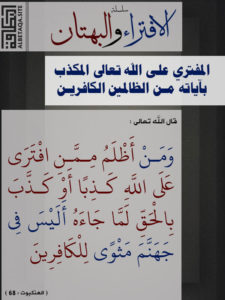 البطاقة
ALBETAQA-SITE
سلسلة
الافتراء والبهتان
المفتري على الله تعالى المكذب
بآياته من الظالمين الكافرين
قال الله تعالى :
وَمَنْ أَظْلَمُ مِمَّنِ افْتَرَى
عَلَى اللَّهِ كَذِبًا أَوْ كَذَّبَ
بِالْحَقِّ لَمَّا جَاءَهُ أَلَيْسَ فِي
جَهَنَّمَ مَثْوًى لِلْكَافِرِينَ
( العنكبوت : 68 )